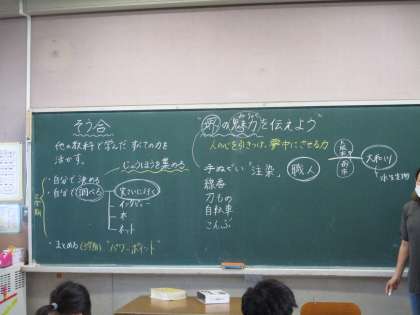 そう合
他の教科で学んだ すべての力を
活かす。
じょうほうを集める
・自分で決める
・自分で調べる
実さいに行く
インタビュー
本
ネット
・まとめる
"パワーポイント"
"堺の魅力を伝えよう"
人の心を引きつけ、夢中にさせる力
手ぬぐい "注染"
職人
線香
刃もの
自転車
こんぶ
大和川
水生生物